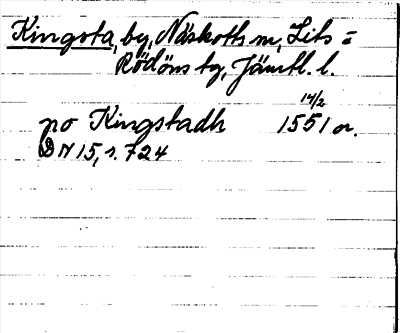 Kingsta, by, Näskotts sn, Lits =
Rödöns tg, Jämtl. l.
14/2
po Kingstadh 1551 or.
DN 15, s. 724